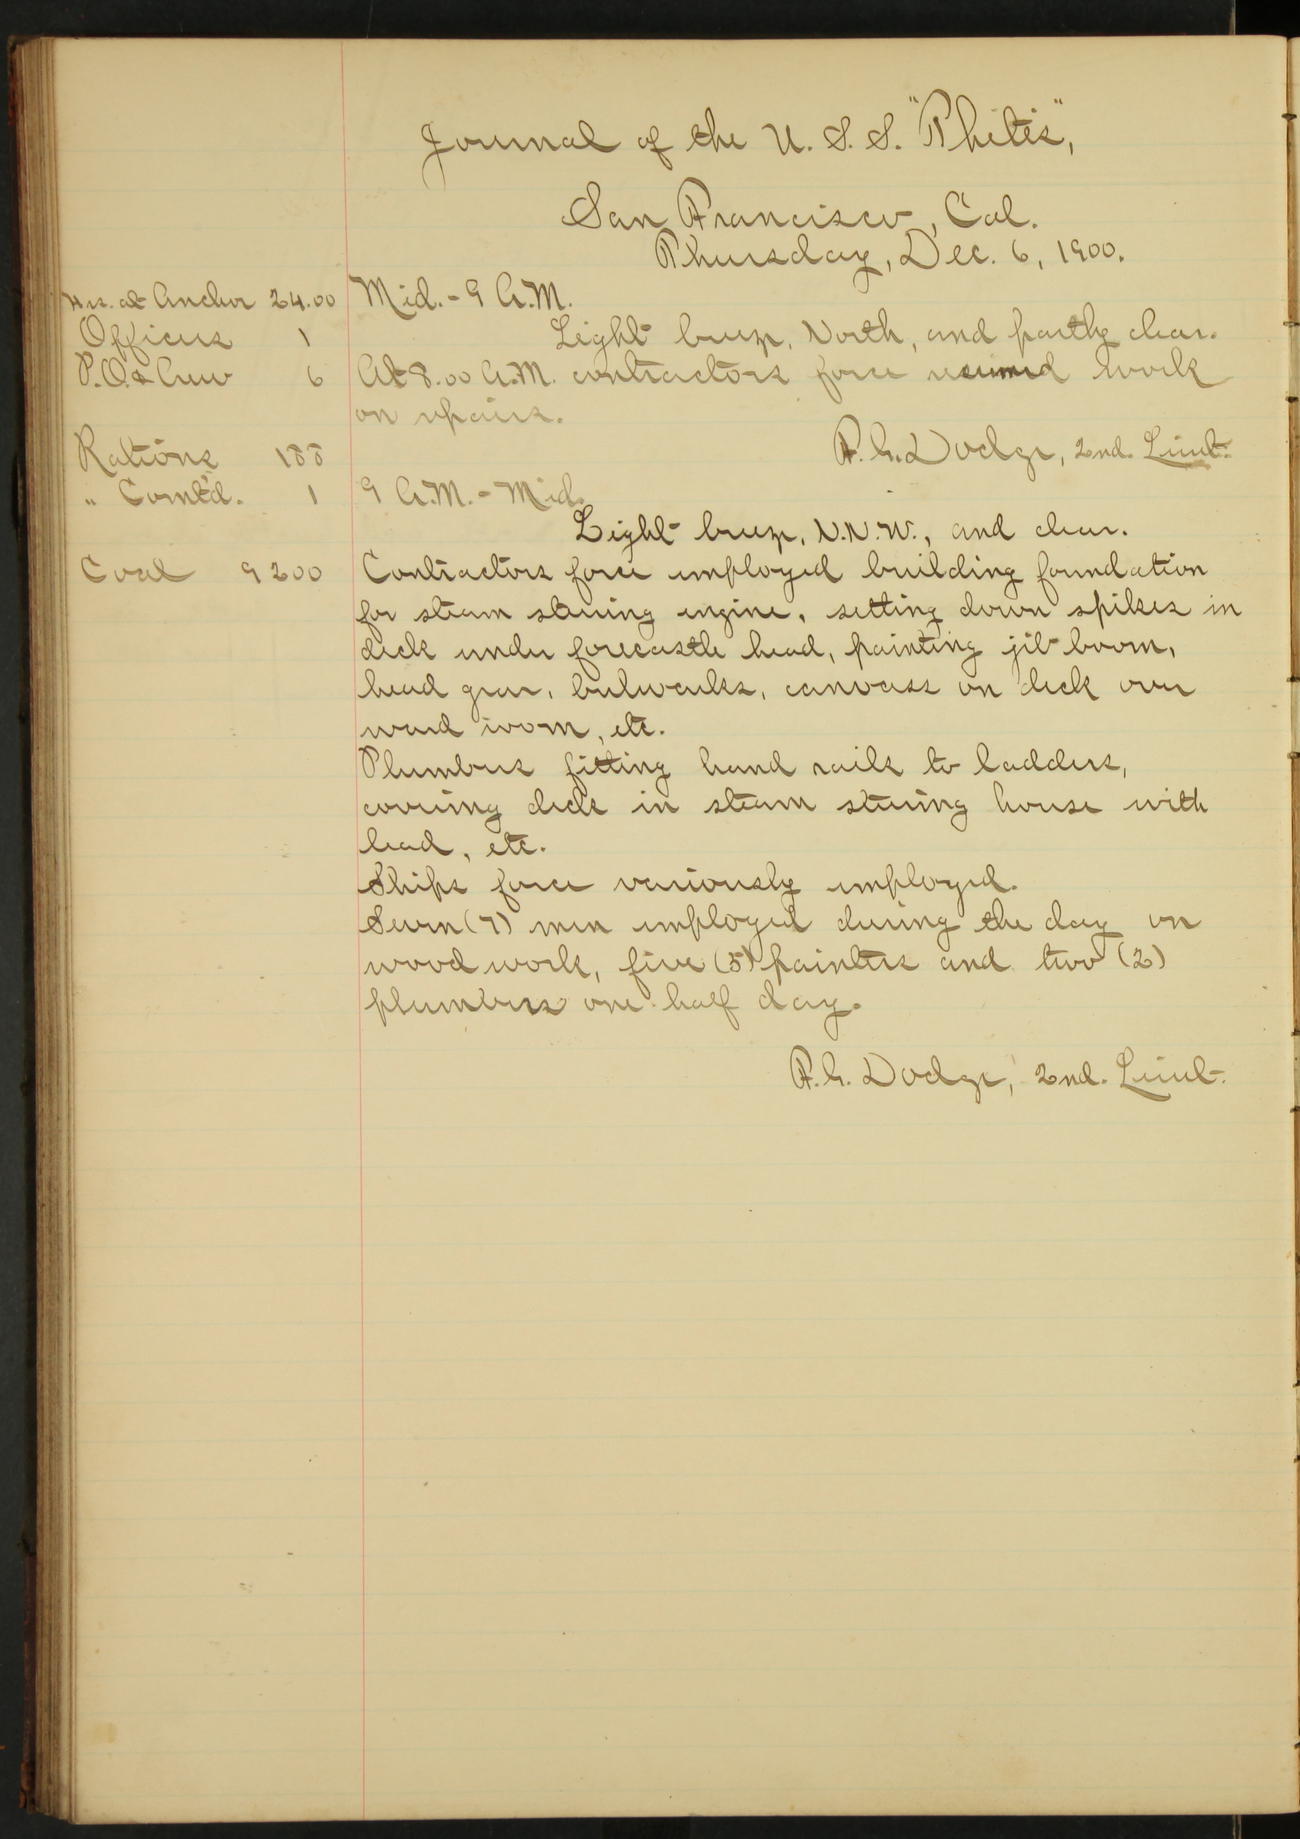 Journal of the U. S. S. "Thetis",
San Francisco, Cal.
Thursday, Dec. 6, 1900.
Hrs. at Anchor 24.00
Officers 1
P.O. & Crew 6
Rations 188
" Com't'd. 1
Coal 9200
Mid. - 9 A.M.
Light breeze, North, and partly clear.
At 8.00 A.M. contractors force resumed work
on repairs.
F. G. Dodge, 2nd. Lieut.
9 A.M. - Mid.
Light breeze, N.N.W., and clear.
Contractors force employed building foundation
for steam steering engine, setting down spikes in
deck under forecastle head, painting jib boom,
head gear, bulwarks, canvass on deck over
ward room, etc.
Plumbers fitting hand rails to ladders,
covering deck in steam steering house with
lead, etc.
Ships force variously employed.
Seven (7) men employed during the day on
wood work, five (5) painters and two (2)
plumbers one half day.
F. G. Dodge, 2nd. Lieut.